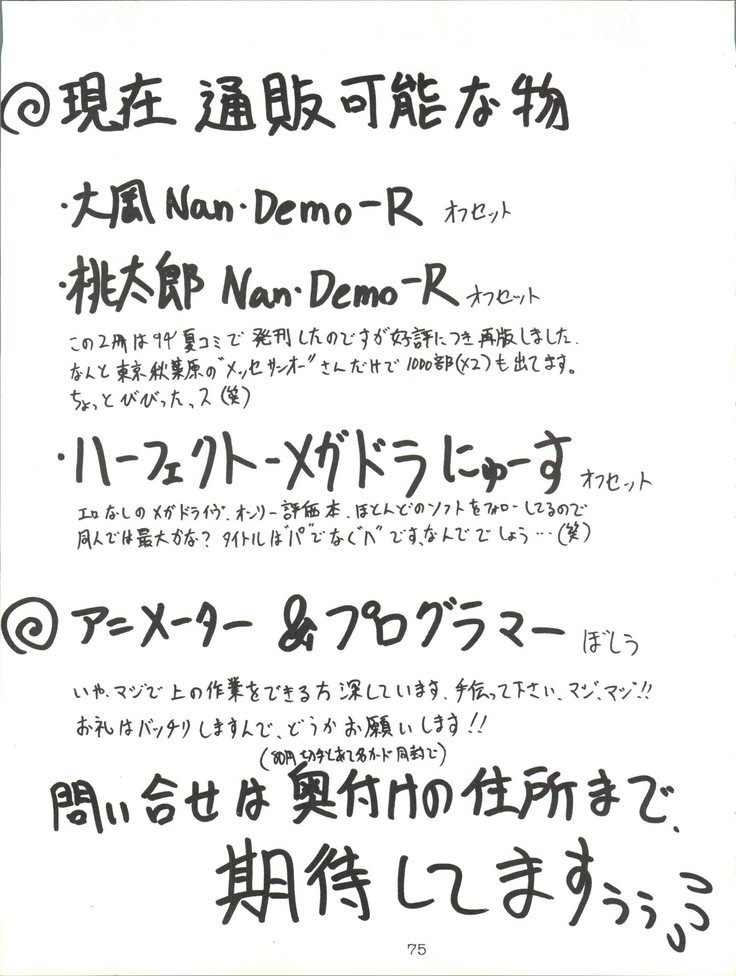 現在 通販可能な物
・大風 Nan・Demo-R オフセット
・桃太郎 Nan・Demo-R オフセット
この2冊は94'夏コミで発刊したのですが好評につき再版しました.
なんと東京秋葉原の"メッセサンオー"さんだけで1000部(×2)も出てます。
ちょっとびびったっス(笑)
・ハーフェクトーメガドラにゅーす オフセット
エロなしのメガドライヴ、オンリー評価本、ほとんどのソフトをフォローしてるので
同人では最大かな? タイトルは"パ"でなく"ハ"です、なんででしょう…(笑)
アニメーター &プログラマー ぼしう
いや、マジで上の作業をできる方探しています、手伝って下さい、マジ、マジ!!
お礼はバッチリしますんで、どうかお願いします!!
(80円切手とあて名カード同封で)
問い合せは奥付けの住所まで、
期待してますぅぅ
75